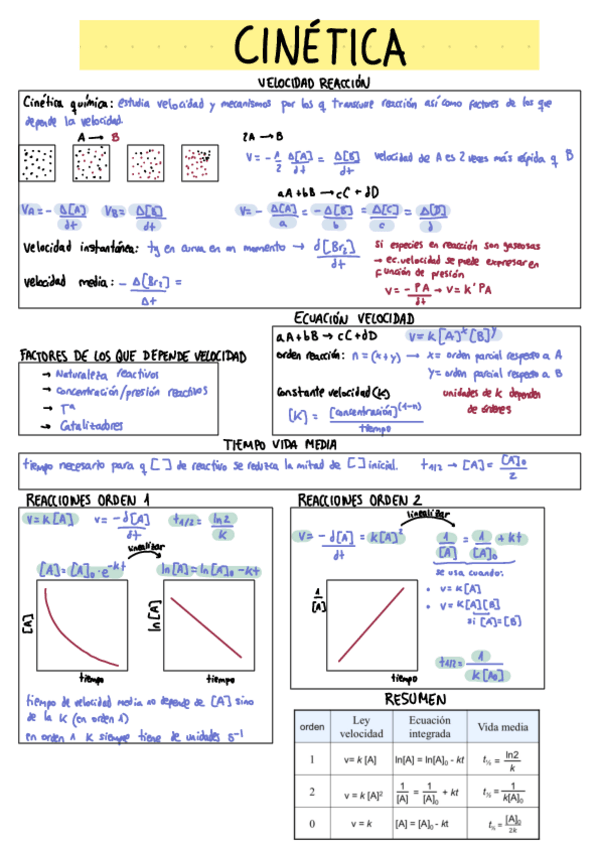 CINÉTICA
VELOCIDAD REACCIÓN
Cinética química: estudia velocidad y mecanismos por los q transcurre reacción así como factores de los que
depende la velocidad.
A → B
2A → B
V = - 1/2 Δ[A]/dt = Δ[B]/dt velocidad de A es 2 veces más rápida q B
aA + bB → cC + dD
VA = - Δ[A]/dt VB = Δ[B]/dt V = - Δ[A]/a = - Δ[B]/b = Δ[C]/c = Δ[D]/d
Velocidad instantánea: tg en curva en un momento → d[Br2]/dt
velocidad media: - Δ[Br2]/Δt =
Si especies en reacción son gaseosas
→ ec. velocidad se puede expresar en
función de presión
V = - PA/dt → V = k' PA
ECUACIÓN VELOCIDAD
aA + bB → cC + dD V = k [A]^x [B]^y
orden reacción: n = (x+y) → x = orden parcial respecto a A
y = orden parcial respecto a B
Constante velocidad (k)
[K] = [concentración]^(1-n)/tiempo
unidades de k dependen
de órdenes
FACTORES DE LOS QUE DEPENDE VELOCIDAD
→ Naturaleza reactivos
→ concentración/presión reactivos
→ Tª
→ Catalizadores
TIEMPO VIDA MEDIA
tiempo necesario para q [ ] de reactivo se reduzca la mitad de [ ] inicial. t1/2 → [A] = [A]0/2
REACCIONES ORDEN 1
V = K[A] V = - d[A]/dt t1/2 = ln2/K
linealizar
[A] = [A]0 · e^-kt ln[A] = ln[A]0 - kt
[A]
tiempo
ln[A]
tiempo
tiempo de velocidad media no depende de [A] sino
de la K (en orden 1)
en orden 1 K siempre tiene de unidades s^-1
REACCIONES ORDEN 2
linealizar
V = - d[A]/dt = K[A]^2 1/[A] = 1/[A]0 + kt
se usa cuando:
• V = K[A]
• V = K[A][B]
si [A] = [B]
1/[A]
tiempo
t1/2 = 1/K[A0]
RESUMEN
orden Ley velocidad Ecuación integrada Vida media
1 v= k [A] ln[A] = ln[A]0 - kt t½ = ln2/k
2 v = k [A]2 1/[A] = 1/[A]0 + kt t½ = 1/k[A]0
0 v = k [A] = [A]0 - kt t½ = [A]0/2k